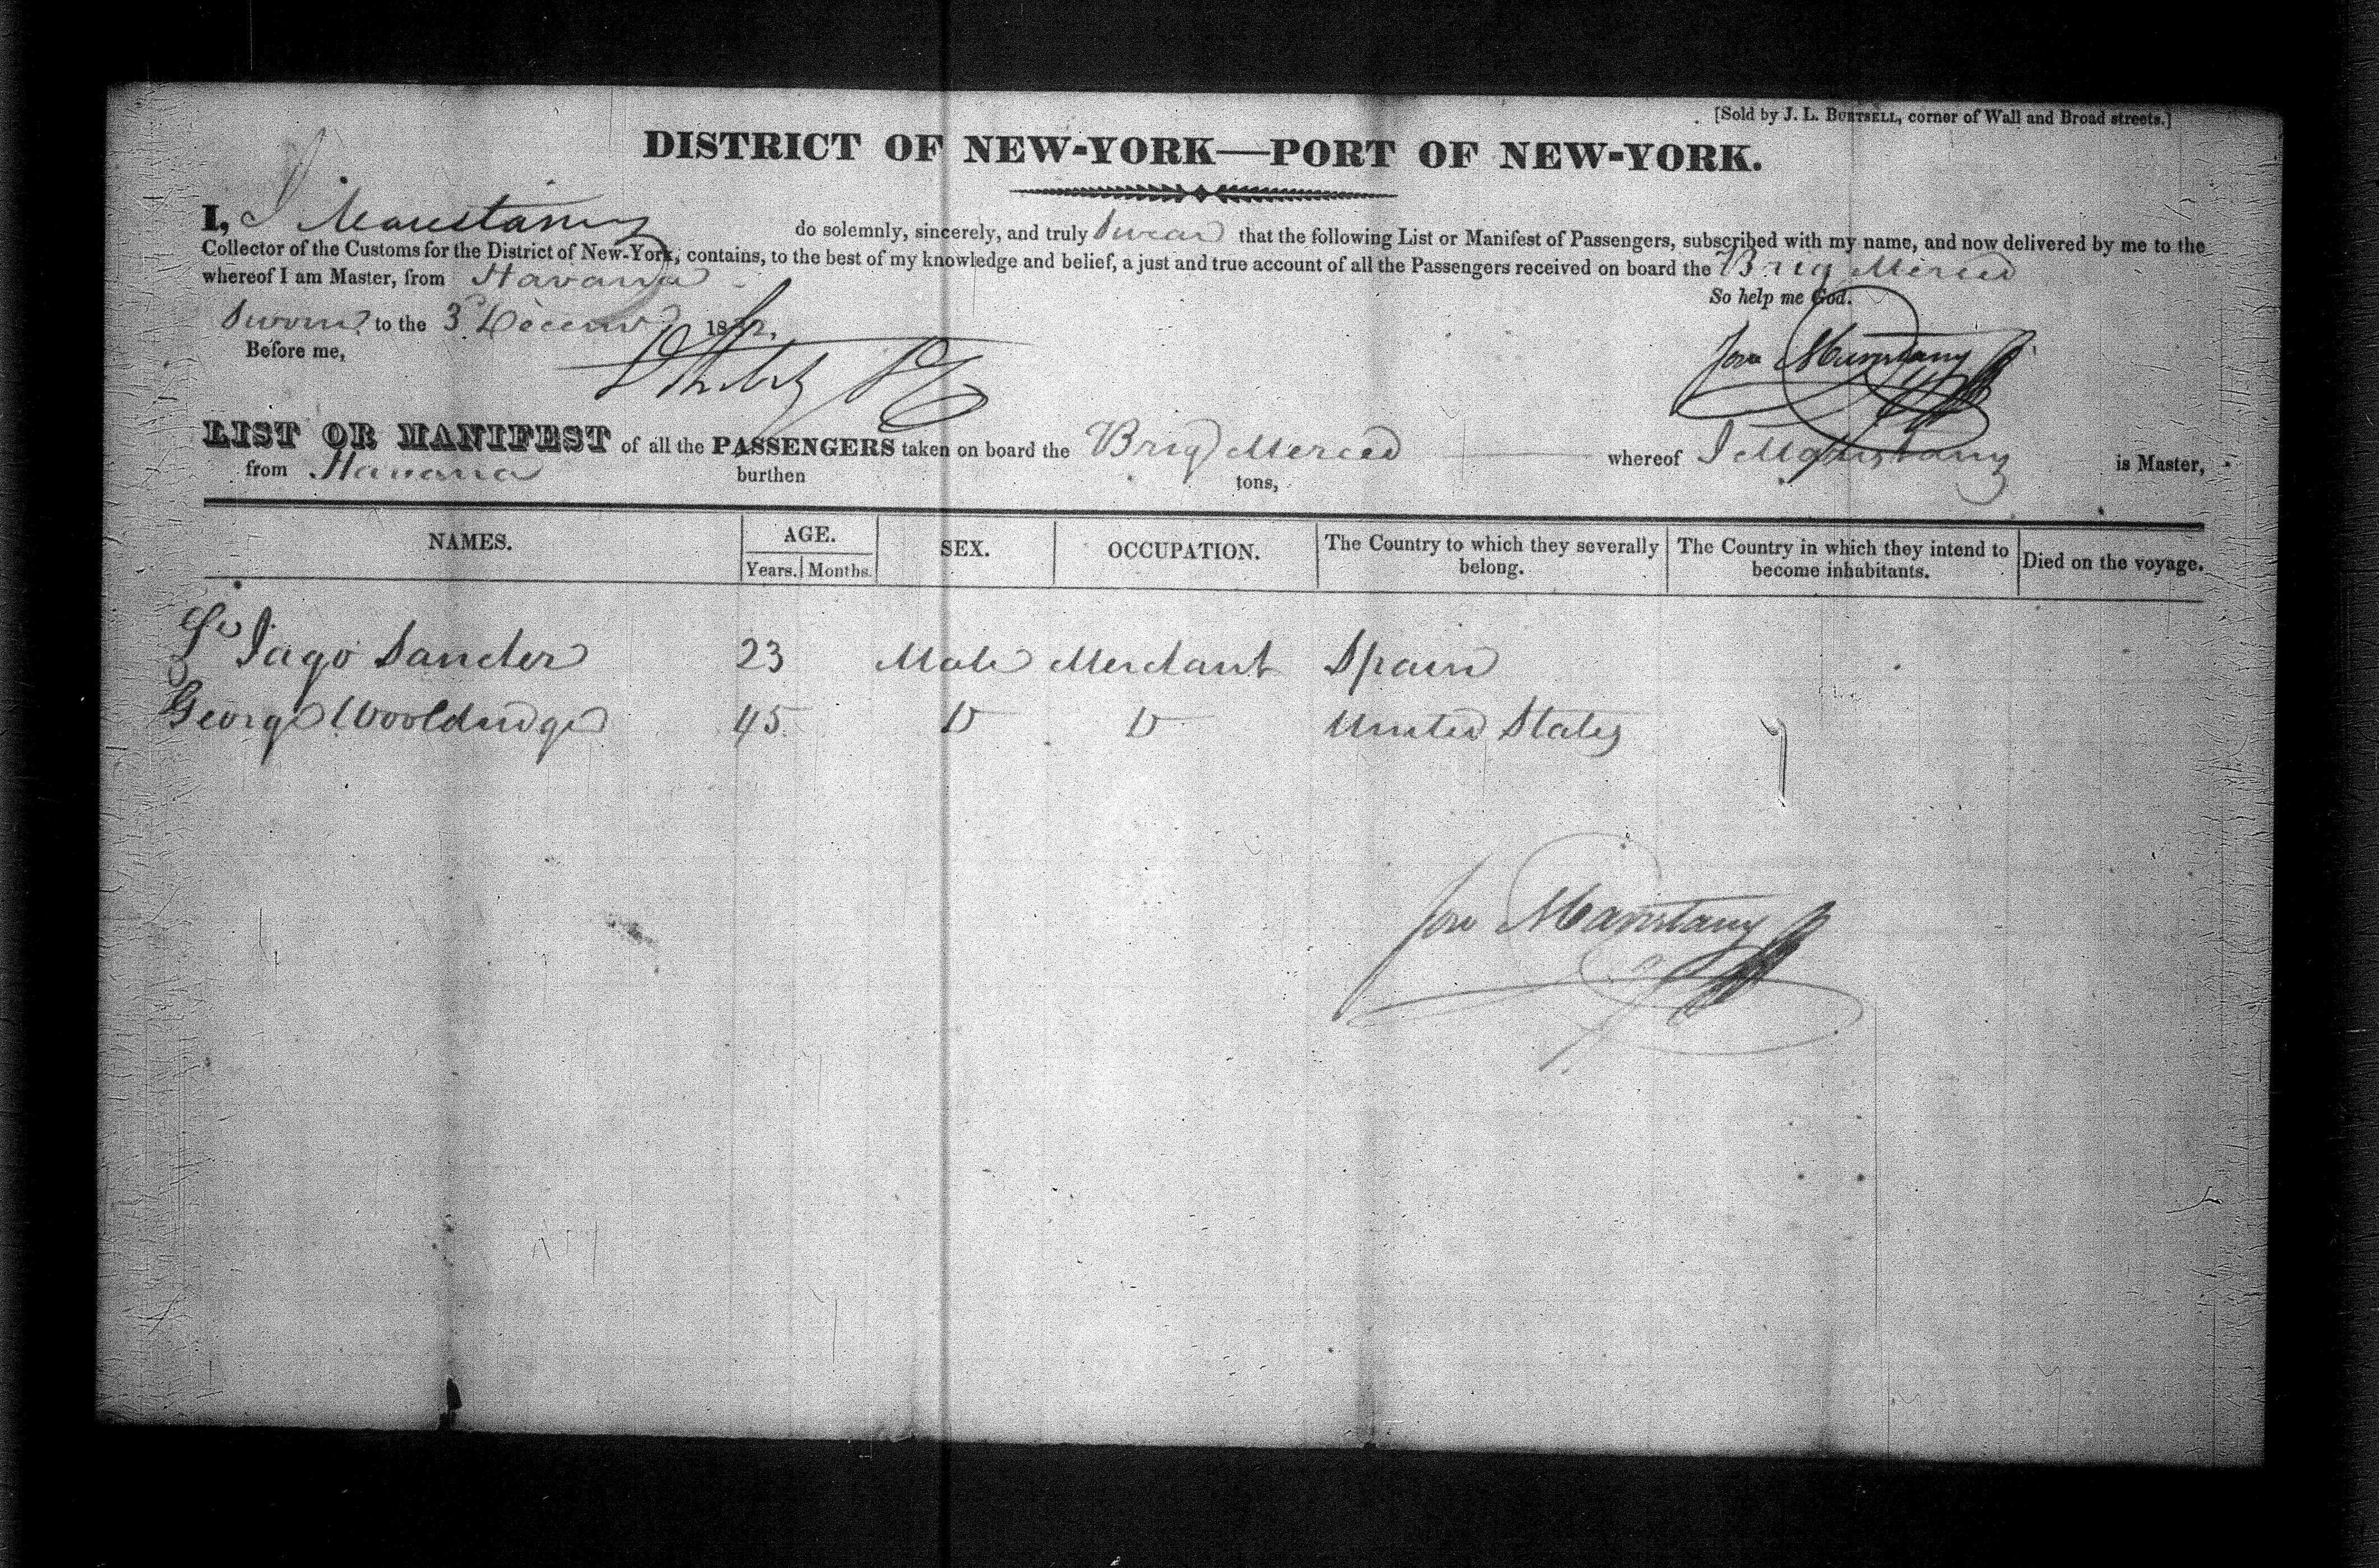 [Sold by J. L. BURTSELL, corner of Wall and Broad streets.]
DISTRICT OF NEW-YORK—PORT OF NEW-YORK.
I, J do solemnly, sincerely, and truly Swear that the following List or Manifest of Passengers, subscribed with my name, and now delivered by me to the
Collector of the Customs for the District of New-York, contains, to the best of my knowledge and belief, a just and true account of all the Passengers received on board the Brig Merced
whereof I am Master, from Havana
So help me God.
Sworn to the 3d 18
Before me,
Jose
LIST OR MANIFEST of all the PASSENGERS taken on board the Brig Merced whereof J is Master,
from Havana burthen tons,
NAMES. AGE. SEX. OCCUPATION. The Country to which they severally belong. The Country in which they intend to become inhabitants. Died on the voyage.
Years. Months.
Jago Sander 23 Male Merchant Spain
George Wooldridge 45 D D United States
Jose